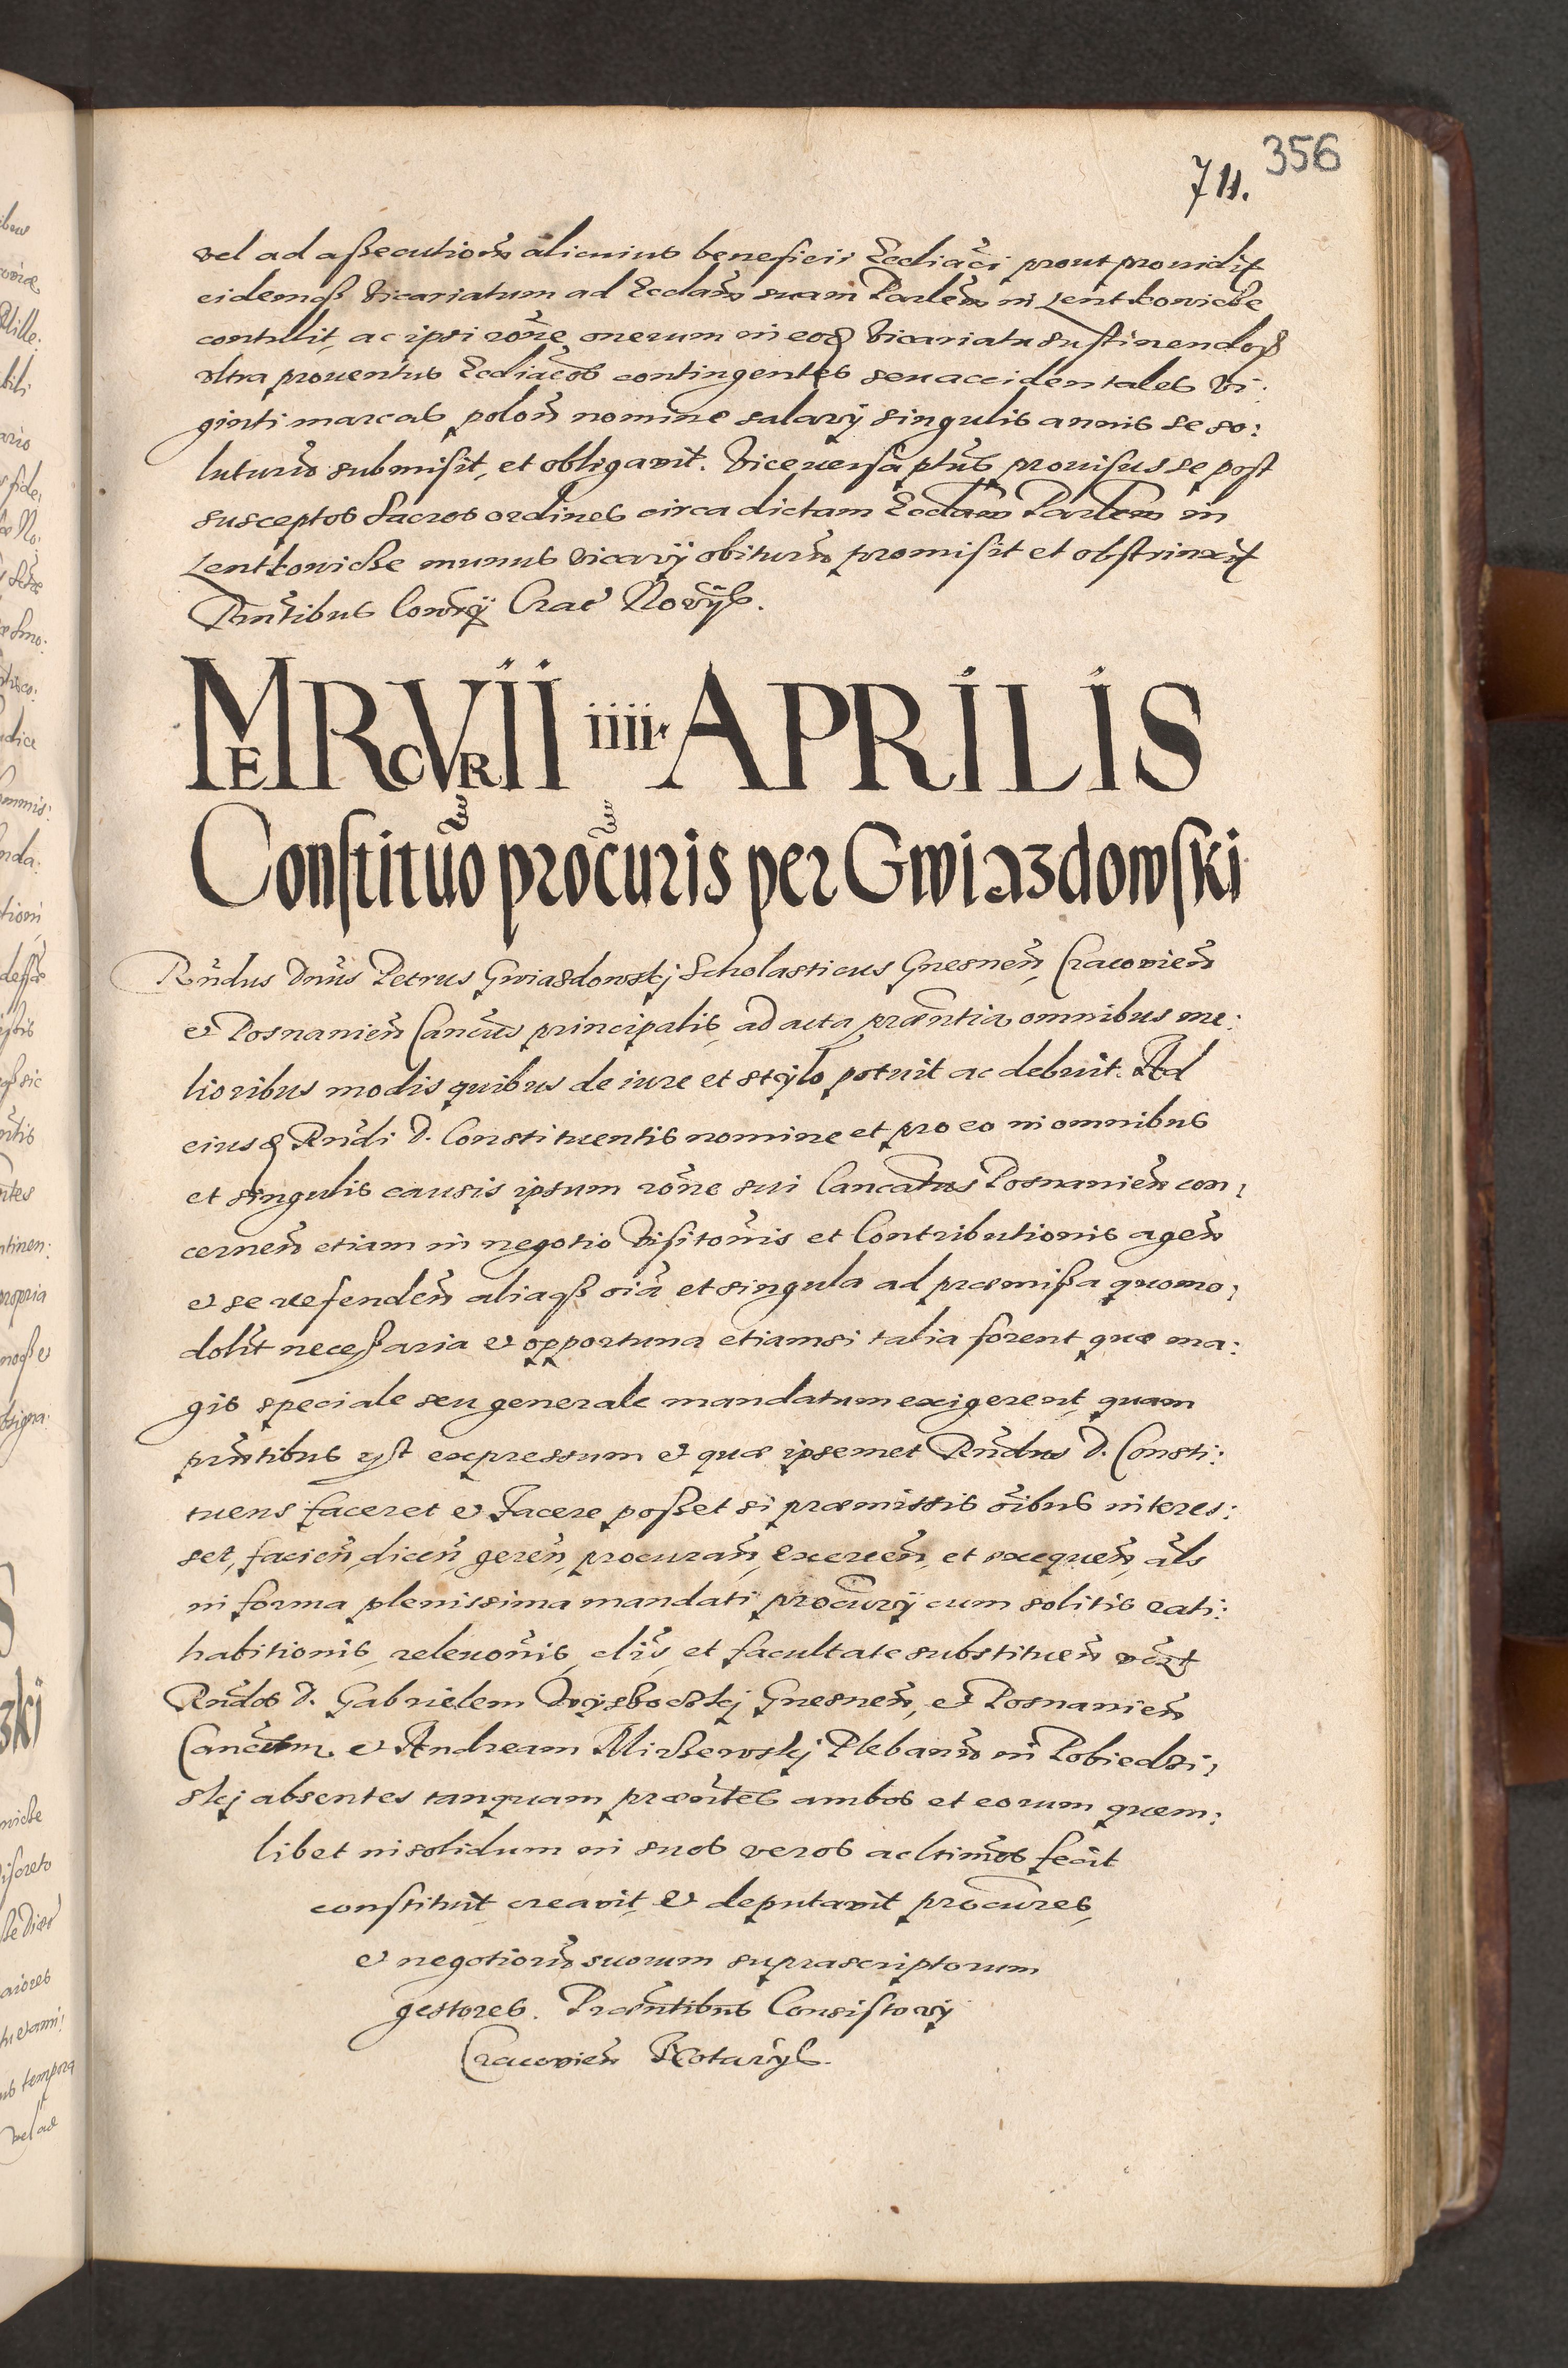 356
711.
vel ad assecutionem alicuius beneficii Eccliãci prout prouidit
eidemq3 Vicariatum ad Ecclãm suam Parlem in Lentkowicze
contulit, ac ipsi rõne onerum in eod Vicariatu sustinendor
vltra prouentus Eccliãcos contingentes seu accidentales Vi:
ginti marcas polon nomine salarÿ singulis annis se so:
luturũ submisit, et obligauit. Vice versa ptus prouisus se post
susceptos sacros ordines circa dictam Ecclam Parlem in
Lentkowicze munus vicarÿ obiturũ promisit et obstrinxit
PñtibusConrÿ Crac Novÿs.
MERCVRII iiii. APRILIS
Constitũo procũris per Gwiazdowski
Rñdus Dnũs Petrus Gwiazdowskj Scholasticus Gnesneñ, Cracovieñ
& Posnanieñ Cancũs principalis, ad acta præñtia omnibus me:
lioribus modis quibus de iure et stylo potuit ac debuit. Ad
eiusd Rñdi D. Constituentis nomine et pro eo in omnibus
et singulis causis ipsum rõne sui Cancatus Posnanieñ con:
cerneñ etiam in negotio Visitõnis et Contributionis ageñ
& se defendeñ aliaq3 oĩa et singula ad præmissa quomo:
dolĩt necessaria & opportuna etiamsi talia forent quæ ma:
gis speciale seu generale mandatum exigerent, quam
pñtibus est expressum & quæ ipsemet Rñdus D. Consti:
tuens faceret & facere posset si præmissis oĩbus interes:
set, facieñ, diceñ, gereñ, procurañ, exerceñ, et exequeñ, als
in forma plenissima mandati procũrÿ cum solitis rati:
habitionis, releuõnis, clĩs, et facultate substitueñ
Rñdos D. Gabrielem Gnesneñ, & Posnanieñ
Cancum & Andream Mirzewskj Plebanũ in Pobiedzi:
skj absentes tanquam præñtes ambos et eorum quem:
libet insolidum in suos veros ac ltimos fecit
constituit, creauit, & deputauit procũres,
& negotiorũ suorum suprascriptorum
gestores. Præñtibus Consistorÿ
Cracovieñ Notarÿs.